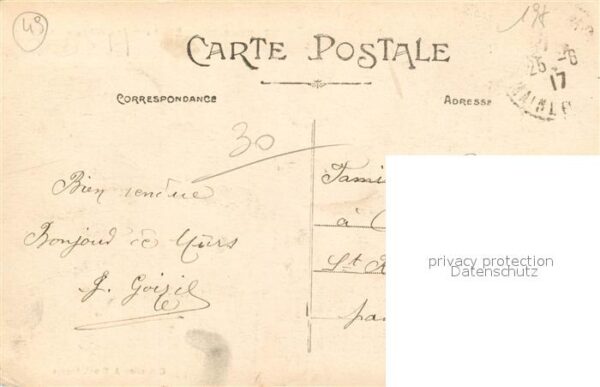 49
195
CARTE POSTALE
25 -6
17
CORRESPONDANCE
ADRESSE
30
Bien rendue
Bonjour de Tours
J. Goizil
Fami
à
St
pa
privacy protection
Datenschutz